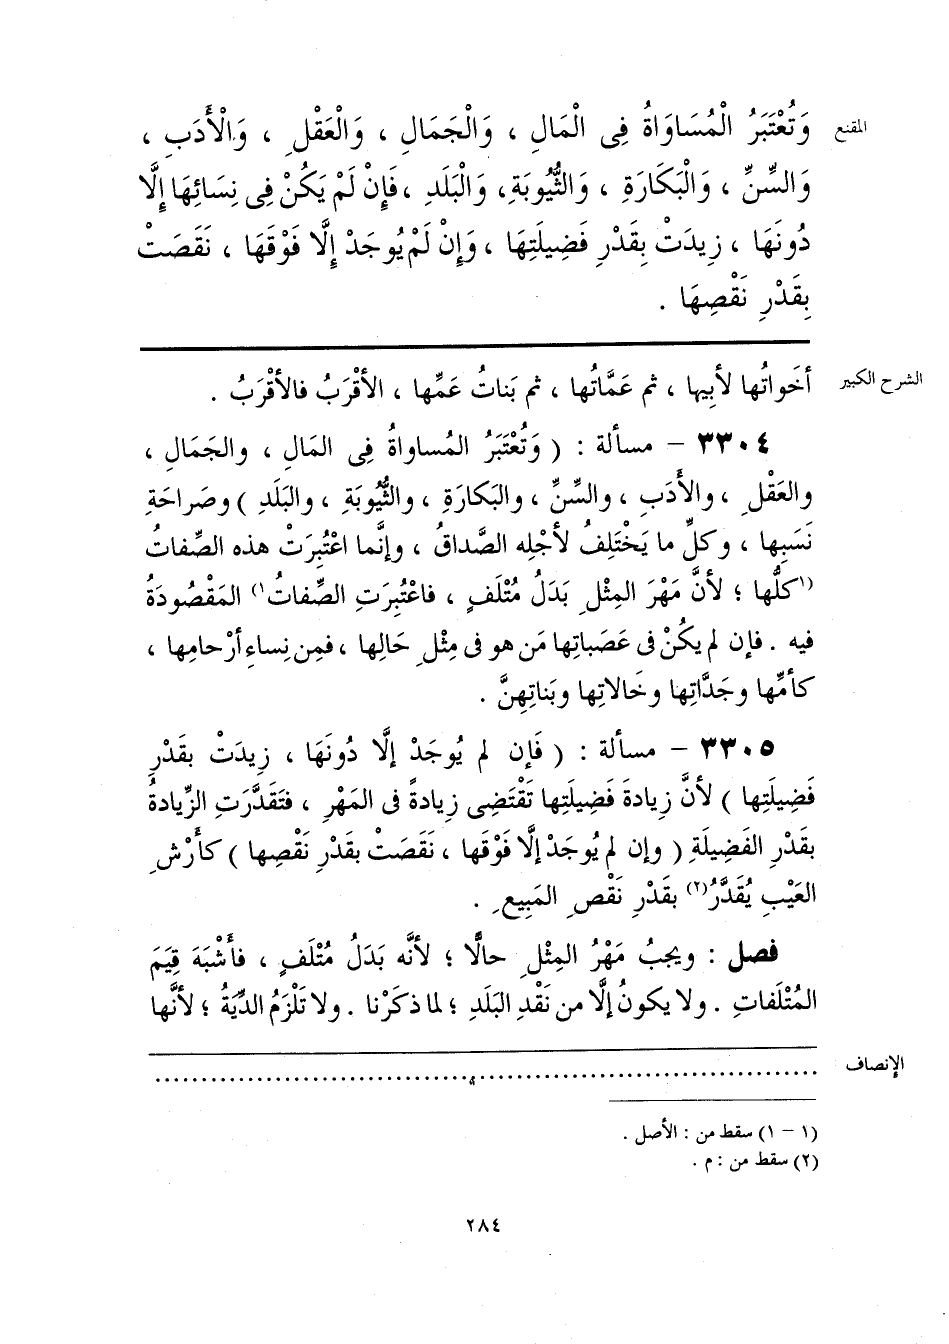 المقنع
وَتُعْتَبَرُ الْمُسَاوَاةُ فِى الْمَالِ ، وَالْجَمَالِ ، وَالْعَقْلِ ، وَالْأَدَبِ ،
وَالسِّنِّ ، وَالْبَكَارَةِ ، وَالثُّيُوبَةِ، وَالْبَلَدِ ، فَإِنْ لَمْ يَكُنْ فِى نِسَائِهَا إِلَّا
دُونَهَا ، زِيدَتْ بِقَدْرِ فَضِيلَتِهَا ، وَإِنْ لَمْ يُوجَدْ إِلَّا فَوْقَهَا ، نَقَصَتْ
بِقَدْرِ نَقْصِهَا .
الشرح الكبير
أخَواتُها لأبِيها ، ثم عَمَّاتُها ، ثم بَناتُ عَمِّها ، الأقْرَبُ فالأقْرَبُ .
٣٣٠٤ – مسألة : ( وَتُعْتَبَرُ المُساواةُ فِى المَالِ ، والجَمَالِ ،
والعَقْلِ ، والأدَبِ ، والسِّنِّ ، والبَكارَةِ ، والثُّيُوبَةِ ، والبَلَدِ ) وصَراحَةِ
نَسَبِها ، وكلِّ ما يَخْتَلِفُ لأجْلِه الصَّداقُ ، وإنَّما اعْتُبِرَتْ هذه الصِّفاتُ
(١كلُّها ؛ لأنَّ مَهْرَ المِثْلِ بَدَلُ مُتْلَفٍ ، فاعْتُبِرَتِ الصِّفاتُ١) المَقْصُودَةُ
فيه . فإن لم يكُنْ فى عَصَباتِها مَن هو فى مِثْلِ حَالِها ، فمِن نِساءِ أرْحامِها ،
كأُمِّها وجَدَّاتِها وخَالاتِها وبَناتِهِنَّ .
٣٣٠٥ – مسألة : ( فَإن لم يُوجَدْ إلَّا دُونَهَا ، زِيدَتْ بقَدْرِ
فَضِيلَتِها ) لأنَّ زِيادةَ فَضِيلَتِها تَقْتَضِى زِيادةً فى المَهْرِ ، فتَقَدَّرَتِ الزِّيادةُ
بقَدْرِ الفَضِيلَةِ ( وإن لم يُوجَدْ إلَّا فَوْقَها ، نَقَصَتْ بقَدْرِ نَقْصِها ) كأَرْشِ
العَيْبِ يُقَدَّرُ(٢) بقَدْرِ نَقْصِ المَبِيعِ .
فصل : ويجبُ مَهْرُ المِثْلِ حالًّا ؛ لأنَّه بَدَلُ مُتْلَفٍ ، فأَشْبَهَ قِيَمَ
المُتْلَفاتِ . ولا يكونُ إلَّا من نَقْدِ البَلَدِ ؛ لما ذكَرْنا . ولا تَلْزَمُ الدِّيَةُ ؛ لأنَّها
الإنصاف
(١ – ١) سقط من : الأصل .
(٢) سقط من : م .
٢٨٤